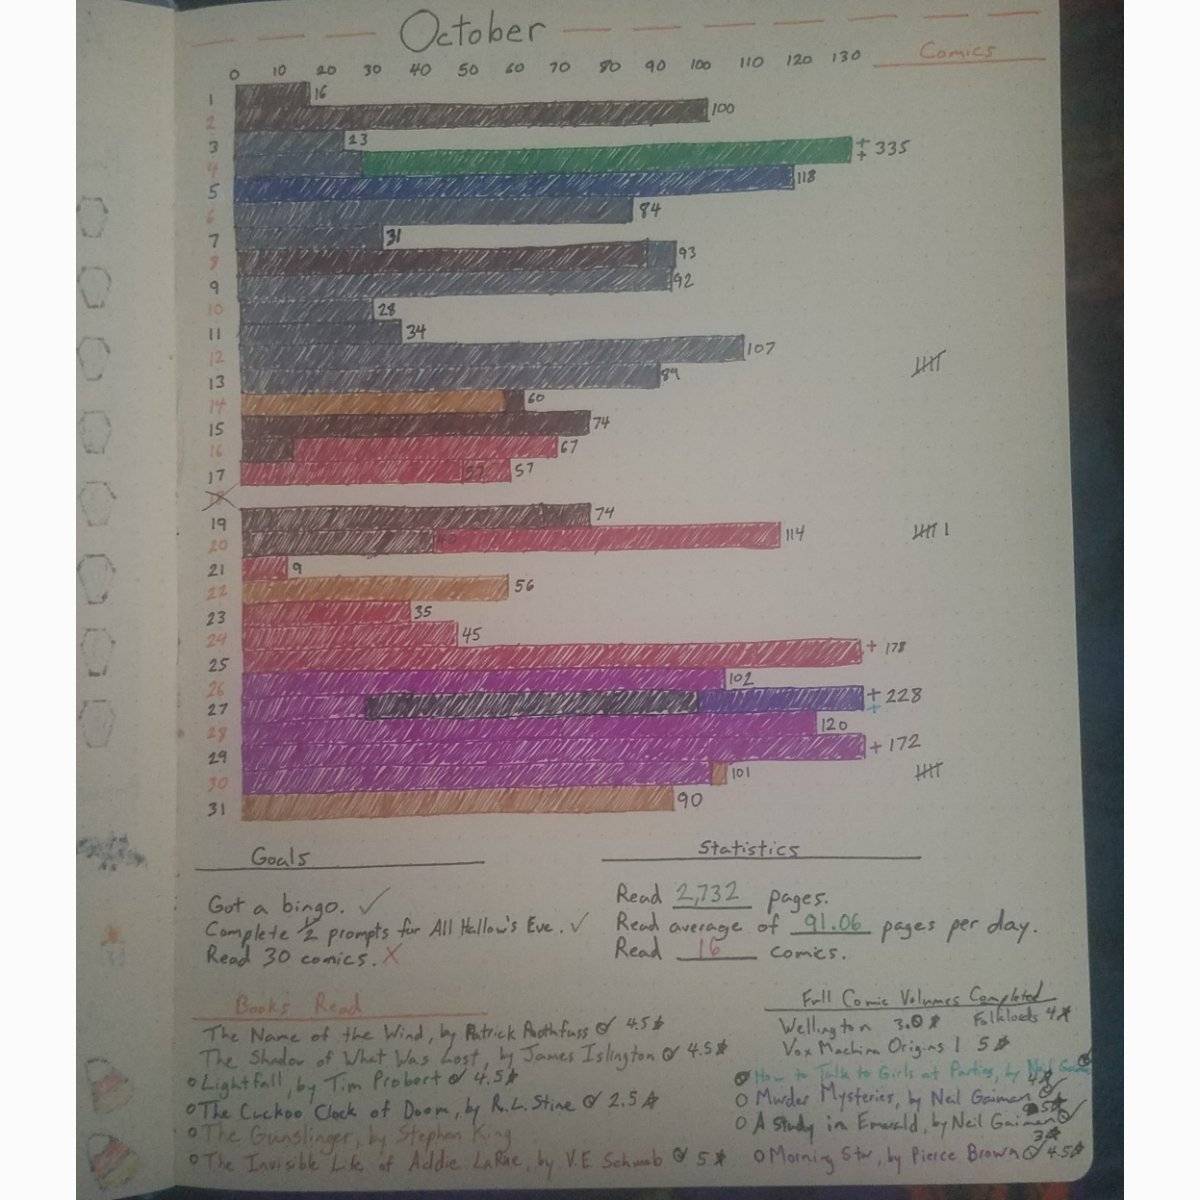 October
0 10 20 30 40 50 60 70 80 90 100 110 120 130
Comics
1 16
2 100
3 23
4 + + 335
5 118
6 84
7 31
8 93
9 92
10 28
11 34
12 107
13 89
14 60
15 74
16 67
17 57 57
18
19 74
20 40 114
21 9
22 56
23 35
24 45
25 + 178
26 102
27 + + 228
28 120
29 + 172
30 101
31 90
Goals
Got a bingo. ✓
Complete 1/2 prompts for All Hallow's Eve. ✓
Read 30 comics. X
Statistics
Read 2,732 pages.
Read average of 91.06 pages per day.
Read 16 comics.
Books Read
The Name of the Wind, by Patrick Rothfuss 4.5
The Shadow of What Was Lost, by James Islington 4.5
Lightfall, by Tim Probert 4.5
The Cuckoo Clock of Doom, by R.L. Stine 2.5
The Gunslinger, by Stephen King
The Invisible Life of Addie LaRue, by V.E. Schwab 5
Full Comic Volumes Completed
Wellington 3.0 Folklords 4
Vox Machina Origins 1 5
How to Talk to Girls at Parties, by Neil Gaiman 4
Murder Mysteries, by Neil Gaiman
A Study in Emerald, by Neil Gaiman 3
Morning Star, by Pierce Brown 4.5